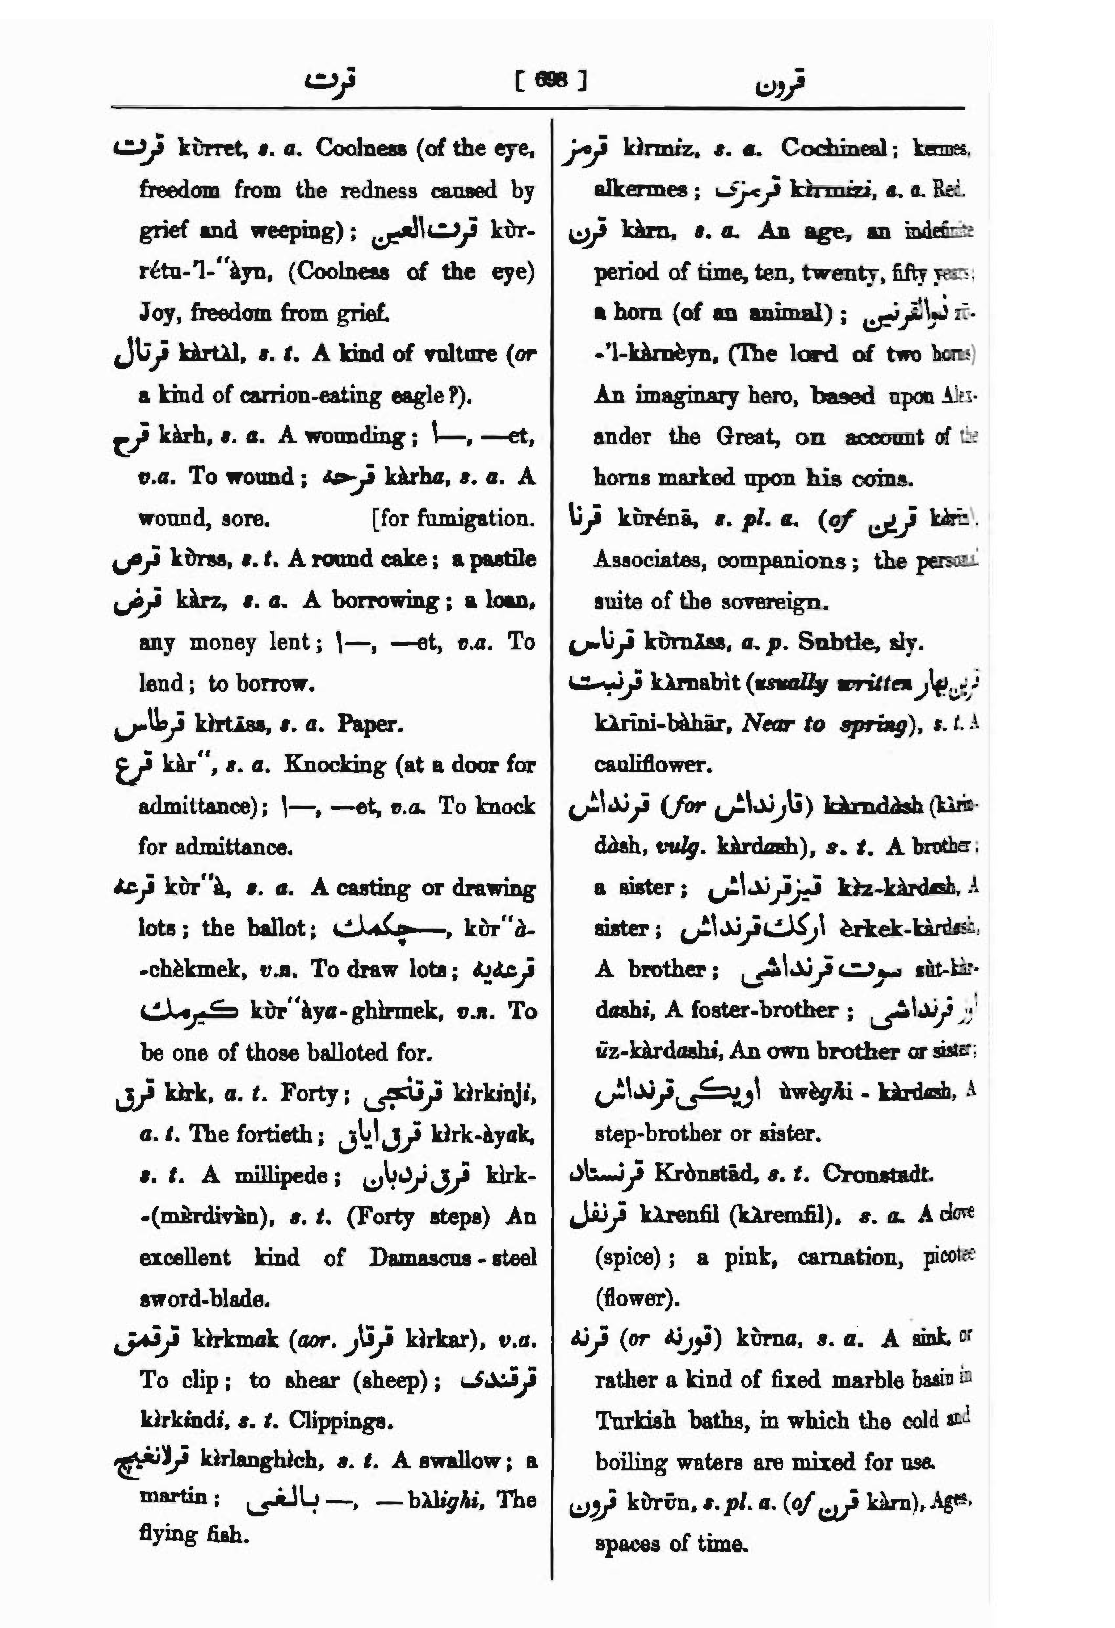 قرت [ 698 ] قرون
قرت kùrret, s. a. Coolness (of the eye,
freedom from the redness caused by
grief and weeping); قرت العين kùr-
rétu-'l-"àyn, (Coolness of the eye)
Joy, freedom from grief.
قرتال kàrtàl, s. t. A kind of vulture (or
a kind of carrion-eating eagle?).
قرح kàrh, s. a. A wounding; ا—, —et,
v.a. To wound; قرحه kàrha, s. a. A
wound, sore. [for fumigation.
قرص kùrss, s. t. A round cake; a pastile
قرض kàrz, s. a. A borrowing; a loan,
any money lent; ا—, —et, v.a. To
lend; to borrow.
قرطاس kìrtāss, s. a. Paper.
قرع kàr", s. a. Knocking (at a door for
admittance); ا—, —et, v.a. To knock
for admittance.
قرعه kùr"à, s. a. A casting or drawing
lots; the ballot; چكمك—, kùr"à-
-chèkmek, v.n. To draw lots; قرعه‌يه
كيرمك kùr"àya-ghìrmek, v.n. To
be one of those balloted for.
قرق kìrk, a. t. Forty; قرقنجى kìrkinji,
a. t. The fortieth; قرق اياق kìrk-àyak,
s. t. A millipede; قرق نردبان kìrk-
-(mèrdivàn), s. t. (Forty steps) An
excellent kind of Damascus-steel
sword-blade.
قرقمق kìrkmak (aor. قرقار kìrkar), v.a.
To clip; to shear (sheep); قرقندى
kìrkindi, s. t. Clippings.
قرلانغيچ kìrlanghìch, s. t. A swallow; a
martin; بالغى—, —bàlighi, The
flying fish.
قرمز kìrmiz, s. a. Cochineal; kermes,
alkermes; قرمزى kìrmizi, a. a. Red.
قرن kàrn, s. a. An age, an indefinite
period of time, ten, twenty, fifty years;
a horn (of an animal); ذوالقرنين zū-
-'l-kàrnèyn, (The lord of two horns)
An imaginary hero, based upon Alex-
ander the Great, on account of the
horns marked upon his coins.
قرنا kùrénā, s. pl. a. (of قرين kàrīn).
Associates, companions; the personal
suite of the sovereign.
قرناس kùrnāss, a. p. Subtle, sly.
قرنبيت kàrnabìt (usually written قرين بهار
kàrīni-bàhār, Near to spring), s. t. A
cauliflower.
قرنداش (for قارنداش) kàrndàsh (kàrin-
dàsh, vulg. kàrdash), s. t. A brother;
a sister; قيزقرنداش kìz-kàrdash, A
sister; اركك قرنداش èrkek-kàrdash,
A brother; سوت قرنداشى sùt-kàr-
dashi, A foster-brother; اوز قرنداشى
ūz-kàrdashi, An own brother or sister;
اويكى قرنداش ùwèghi-kàrdash, A
step-brother or sister.
قرنستاد Krònstād, s. t. Cronstadt.
قرنفل kàrenfil (kàremfil), s. a. A clove
(spice); a pink, carnation, picotee
(flower).
قرنه (or قورنه) kùrna, s. a. A sink, or
rather a kind of fixed marble basin in
Turkish baths, in which the cold and
boiling waters are mixed for use.
قرون kùrūn, s. pl. a. (of قرن kàrn), Ages,
spaces of time.